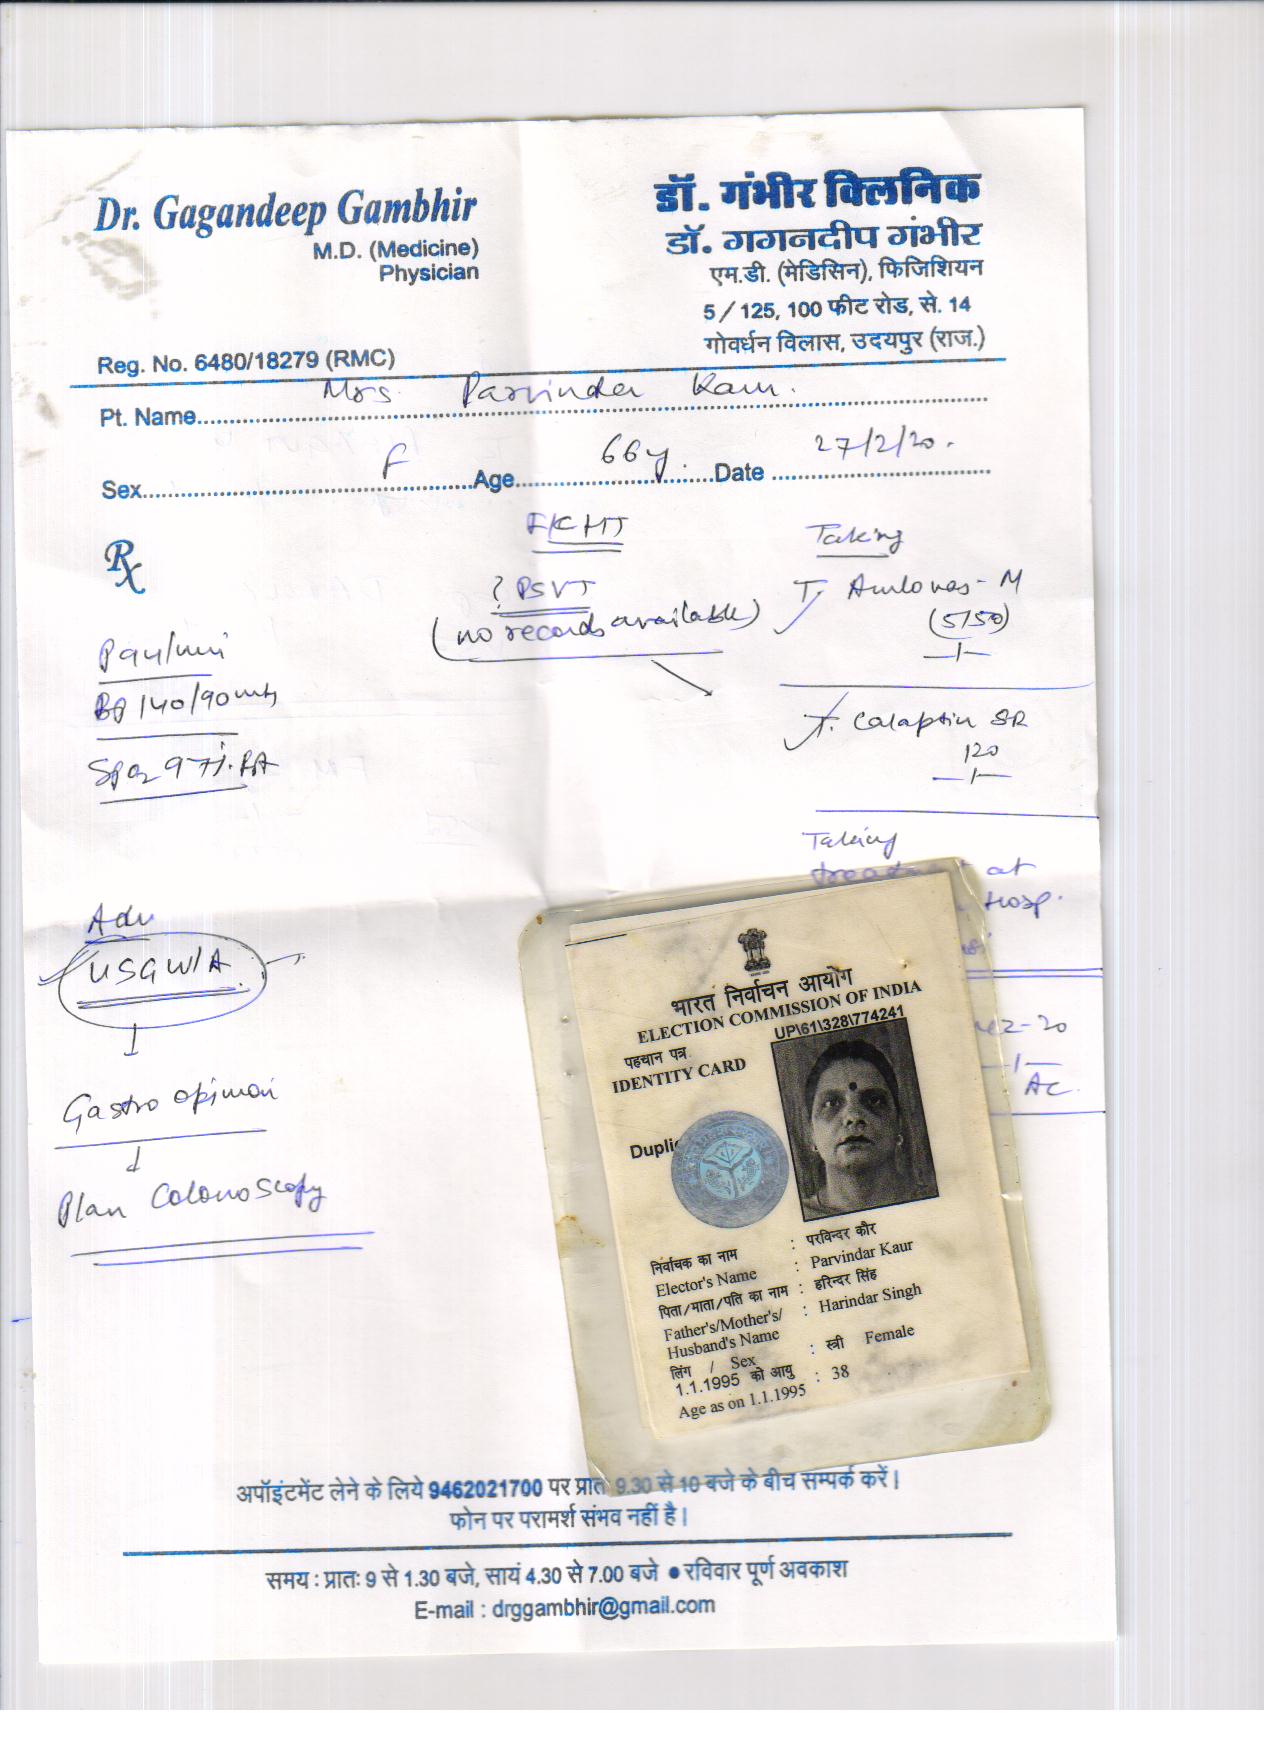 Dr. Gagandeep Gambhir
M.D. (Medicine)
Physician
Reg. No. 6480/18279 (RMC)
डॉ. गंभीर क्लिनिक
डॉ. गगनदीप गंभीर
एम.डी. (मेडिसिन), फिजिशियन
5 / 125, 100 फीट रोड, से. 14
गोवर्धन विलास, उदयपुर (राज.)
Pt. Name Mrs. Parvinder Kaur.
Sex F Age 66y. Date 27/2/20.
Rx
HT
? PSVT
(no records available)
P 94/min
BP 140/90
97%. RA
Adv
USG W/A
Gastro opinion
Plan Colonoscopy
Taking
T. Amlovas-M
(5/50)
T. Calaptin SR
120
Taking
at
Hosp.
-20
AC.
भारत निर्वाचन आयोग
ELECTION COMMISSION OF INDIA
UP\61\328\774241
पहचान पत्र
IDENTITY CARD
Duplic
निर्वाचक का नाम : परविन्दर कौर
Elector's Name : Parvindar Kaur
पिता/माता/पति का नाम : हरिन्दर सिंह
Father's/Mother's/ : Harindar Singh
Husband's Name
लिंग / Sex : स्त्री Female
1.1.1995 को आयु : 38
Age as on 1.1.1995
अपॉइंटमेंट लेने के लिये 9462021700 पर प्रात 9.30 से 10 बजे के बीच सम्पर्क करें।
फोन पर परामर्श संभव नहीं है।
समय : प्रातः 9 से 1.30 बजे, सायं 4.30 से 7.00 बजे ● रविवार पूर्ण अवकाश
E-mail : drggambhir@gmail.com